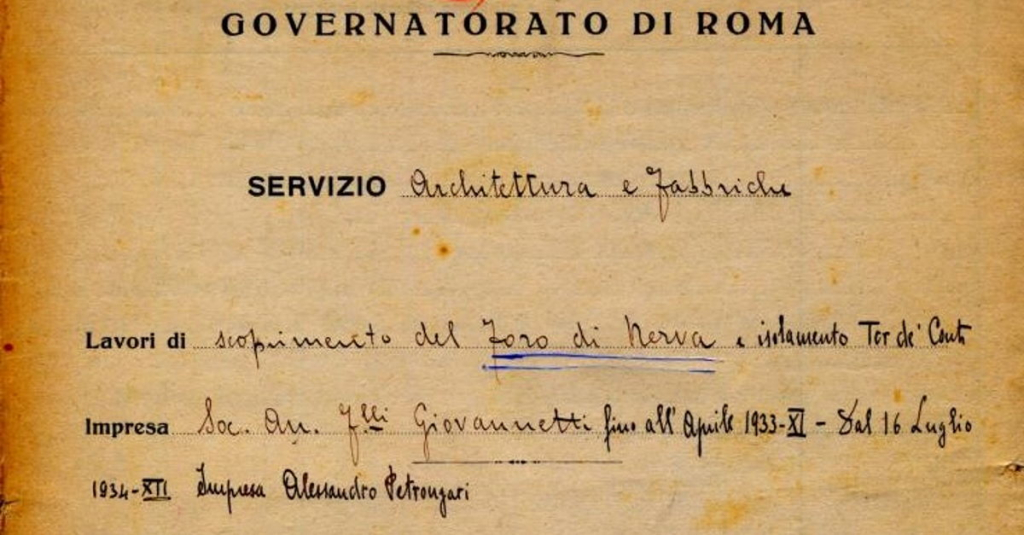 GOVERNATORATO DI ROMA
SERVIZIO Architettura e Fabbriche
Lavori di scoprimento del Foro di Nerva e isolamento Tor de' Conti
Impresa Soc. An. F.lli Giovannetti fino all'Aprile 1933-XI - Dal 16 Luglio
1934-XII Impresa Alessandro Petrongari